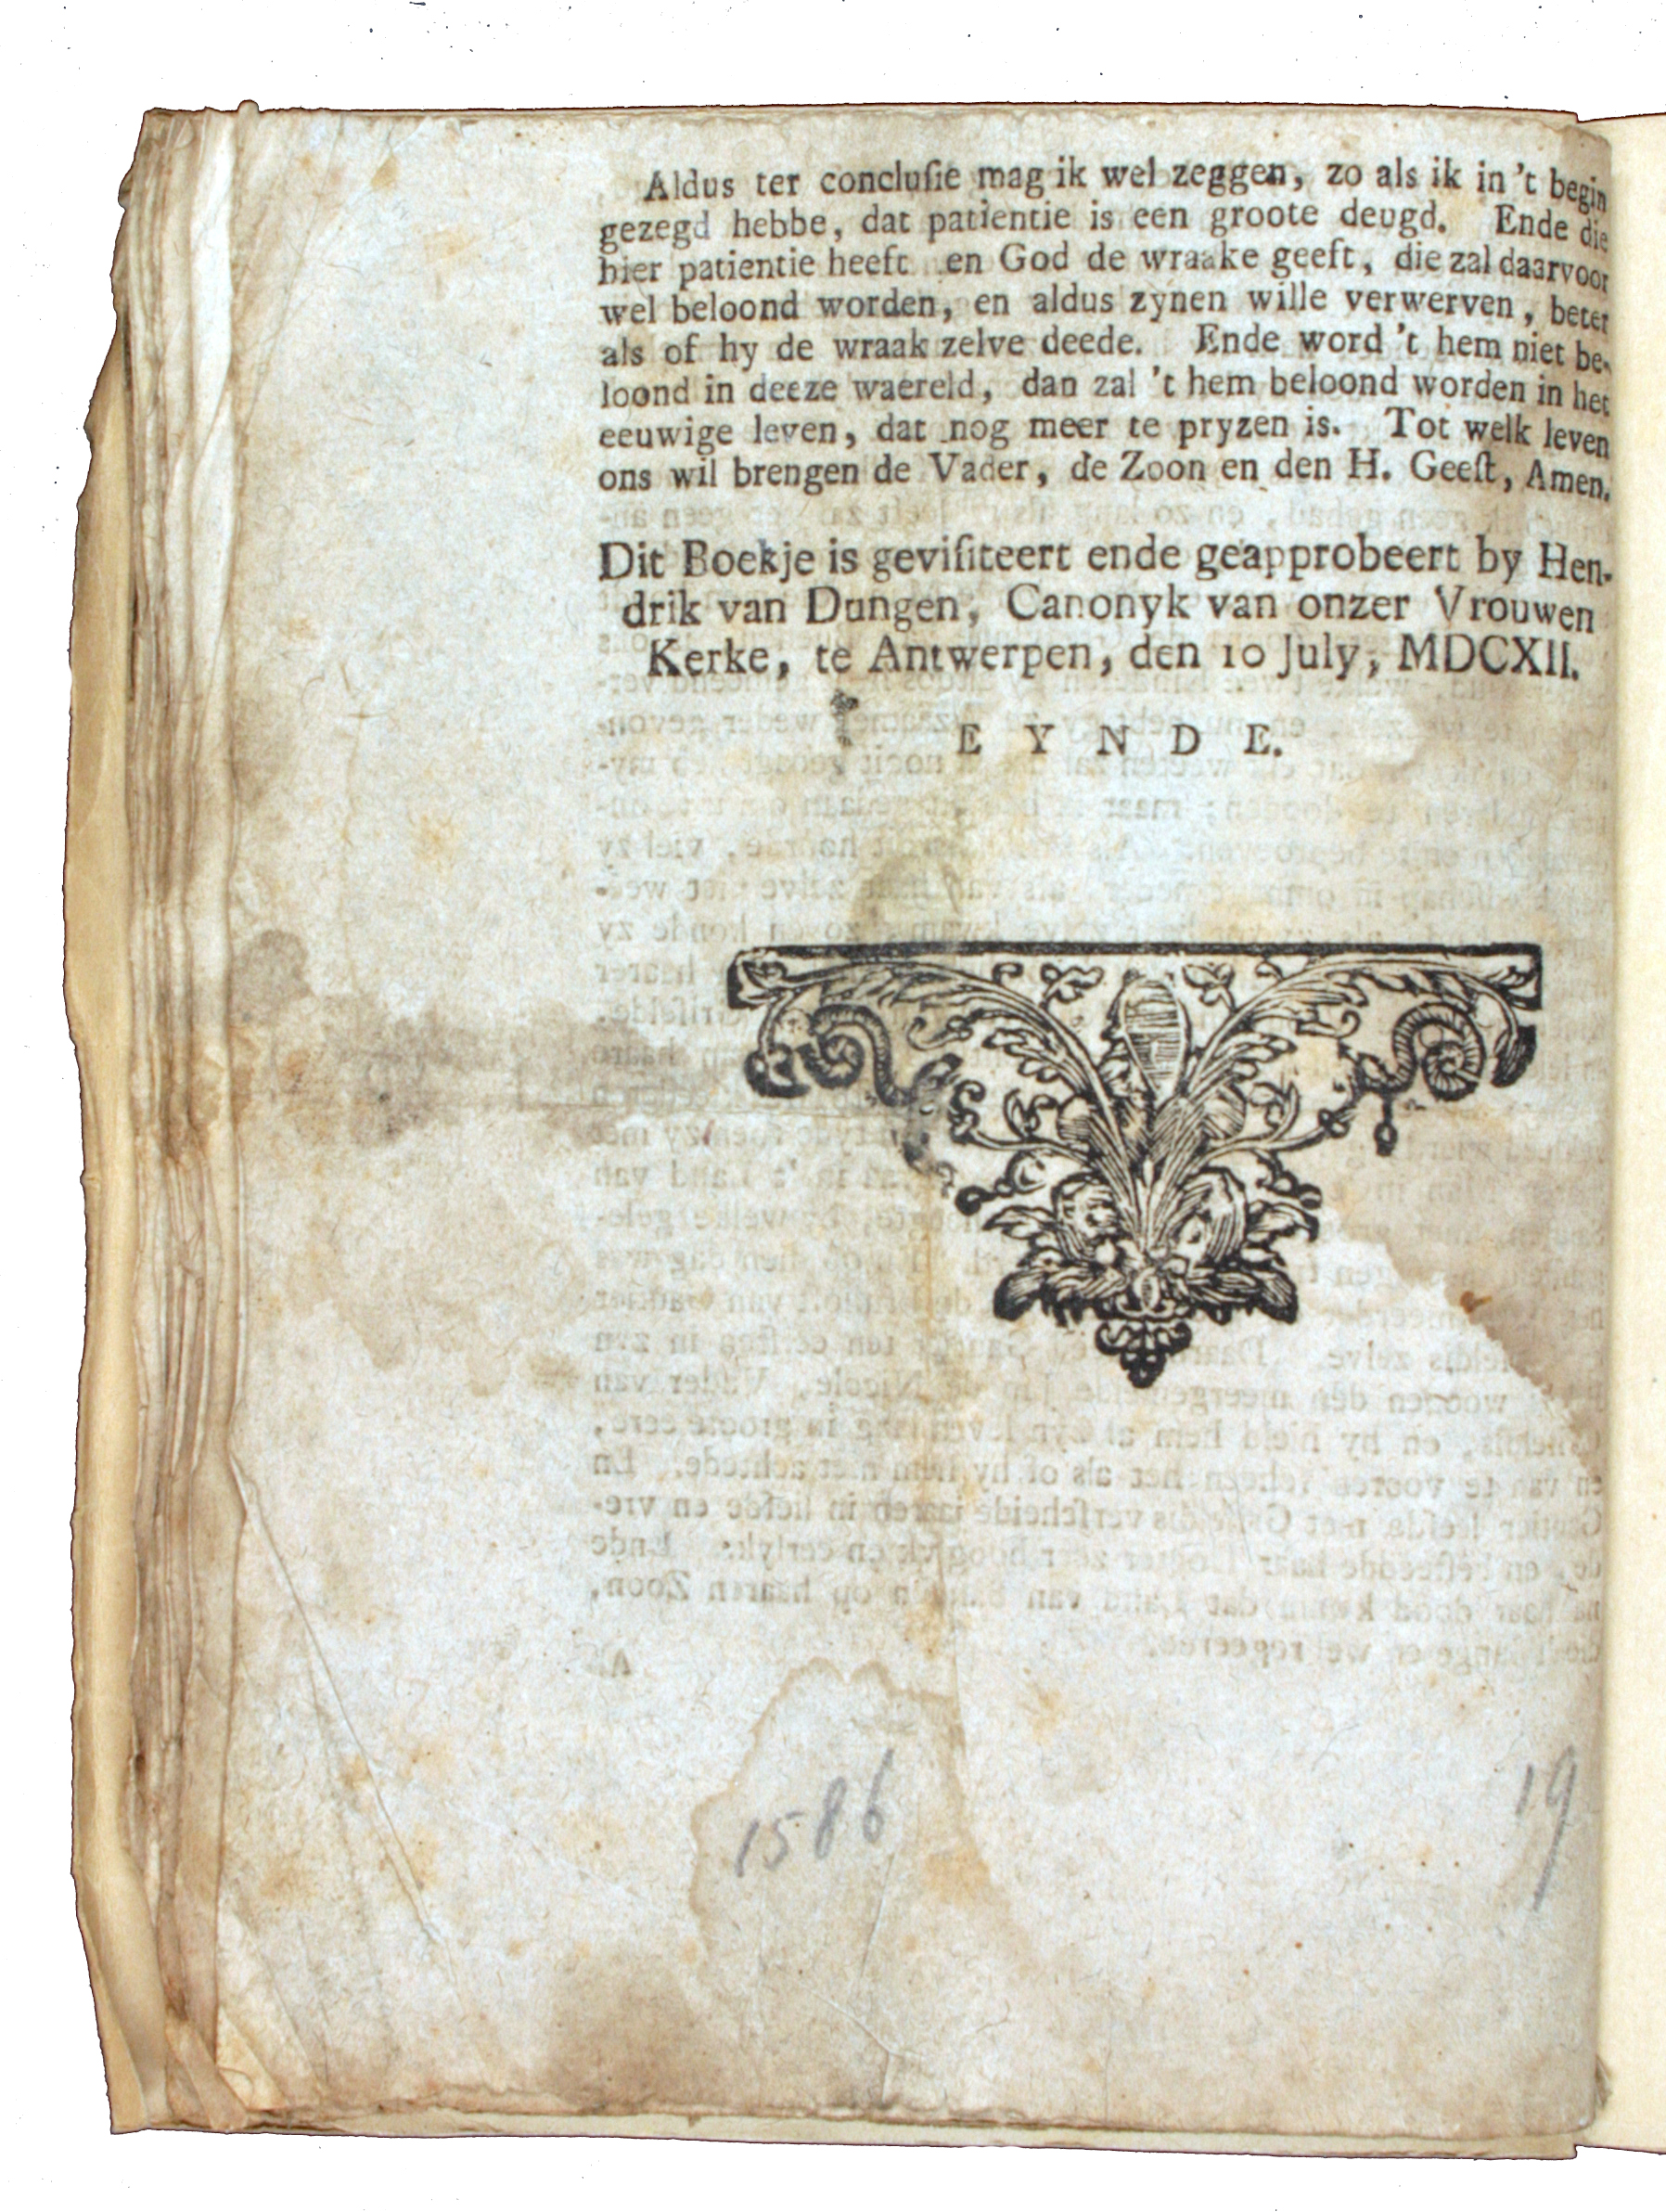 Aldus ter concluſie mag ik wel zeggen, zo als ik in 't begin
gezegd hebbe, dat patientie is een groote deugd. Ende die
hier patientie heeft en God de wraake geeft, die zal daarvoor
wel beloond worden, en aldus zynen wille verwerven, beter
als of hy de wraak zelve deede. Ende word 't hem niet be-
loond in deeze waereld, dan zal 't hem beloond worden in het
eeuwige leven, dat nog meer te pryzen is. Tot welk leven
ons wil brengen de Vader, de Zoon en den H. Geeſt, Amen.
Dit Boekje is geviſiteert ende geapprobeert by Hen-
drik van Dungen, Canonyk van onzer Vrouwen
Kerke, te Antwerpen, den 10 July, MDCXII.
EYNDE.
1586
19